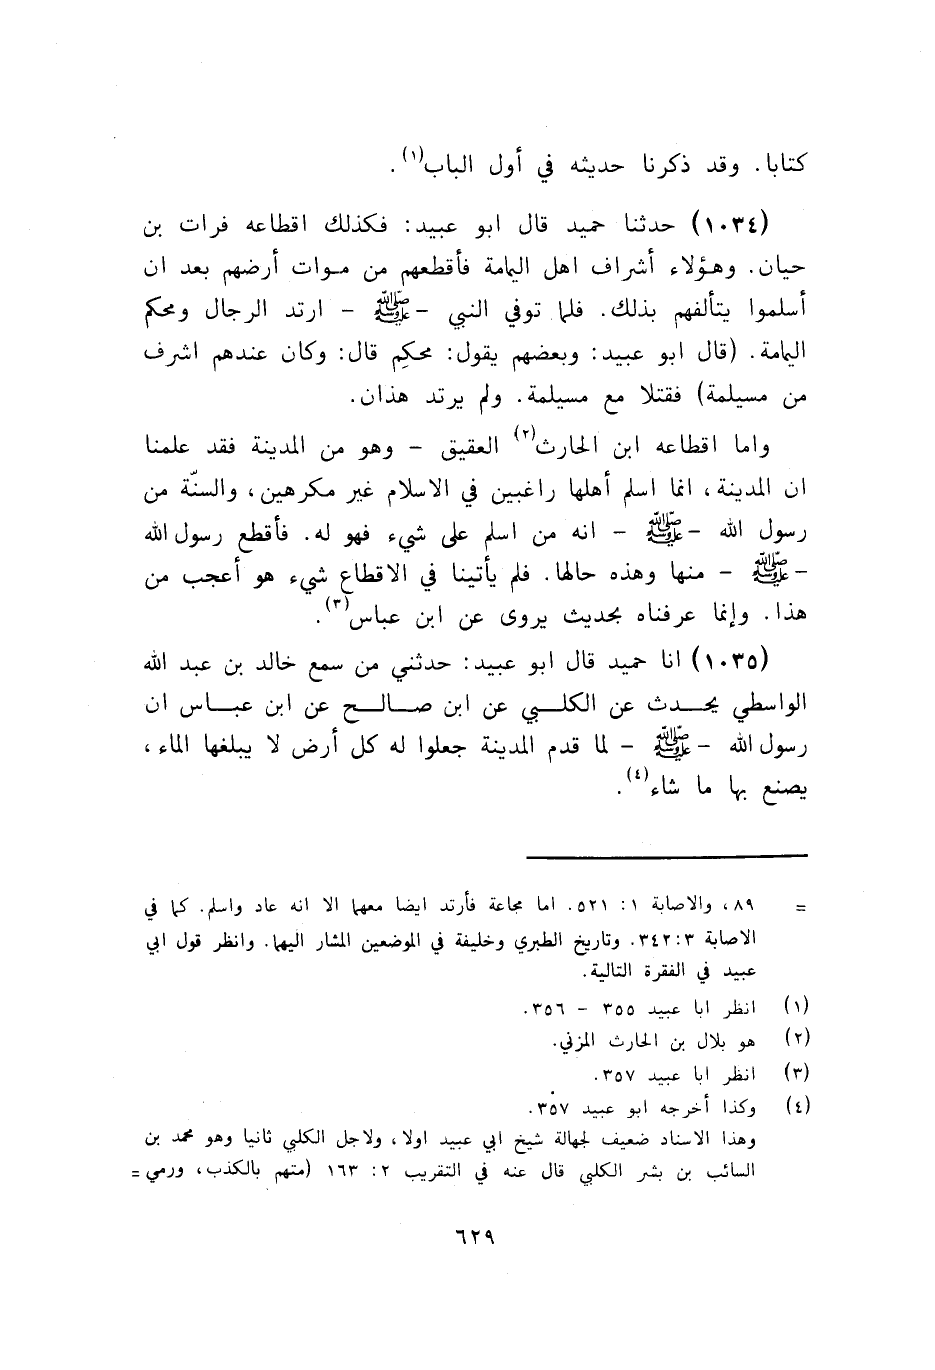 كتابا. وقد ذكرنا حديثه في أول الباب(١).
(١٠٣٤) حدثنا حميد قال ابو عبيد: فكذلك اقطاعه فرات بن
حيان. وهؤلاء أشراف اهل اليمامة فأقطعهم من موات أرضهم بعد ان
أسلموا يتألفهم بذلك. فلما توفي النبي - ﷺ - ارتد الرجال ومحكم
اليمامة. (قال ابو عبيد: وبعضهم يقول: محكم قال: وكان عندهم اشرف
من مسيلمة) فقتلا مع مسيلمة. ولم يرتد هذان.
واما اقطاعه ابن الحارث(٢) العقيق - وهو من المدينة فقد علمنا
ان المدينة، انما اسلم أهلها راغبين في الاسلام غير مكرهين، والسنّة من
رسول الله - ﷺ - انه من اسلم على شيء فهو له. فأقطع رسول الله
- ﷺ - منها وهذه حالها. فلم يأتينا في الاقطاع شيء هو أعجب من
هذا. وإنما عرفناه بحديث يروى عن ابن عباس(٣).
(١٠٣٥) انا حميد قال ابو عبيد: حدثني من سمع خالد بن عبد الله
الواسطي يحدث عن الكلبي عن ابن صالح عن ابن عباس ان
رسول الله - ﷺ - لما قدم المدينة جعلوا له كل أرض لا يبلغها الماء،
يصنع بها ما شاء(٤).
= ٨٩، والاصابة ١: ٥٢١. اما مجاعة فأرتد ايضا معهما الا انه عاد واسلم. كما في
الاصابة ٣: ٣٤٢. وتاريخ الطبري وخليفة في الموضعين المشار اليهما. وانظر قول ابي
عبيد في الفقرة التالية.
(١) انظر ابا عبيد ٣٥٥ - ٣٥٦.
(٢) هو بلال بن الحارث المزني.
(٣) انظر ابا عبيد ٣٥٧.
(٤) وكذا أخرجه ابو عبيد ٣٥٧.
وهذا الاسناد ضعيف لجهالة شيخ ابي عبيد اولا، ولاجل الكلبي ثانيا وهو محمد بن
السائب بن بشر الكلبي قال عنه في التقريب ٢: ١٦٣ (متهم بالكذب، ورمي =
٦٢٩